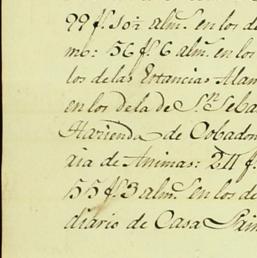 99 f.s 10½ alm.s en los d
mo: 56 f.s 6 alm.s en los
los de las Estancias Alam
en los de la de S.n Seba
Hacienda de Cobadon
ria de Animas: 211 f.
55 f.s 3 alm.s en los de
diario de Casa Prin